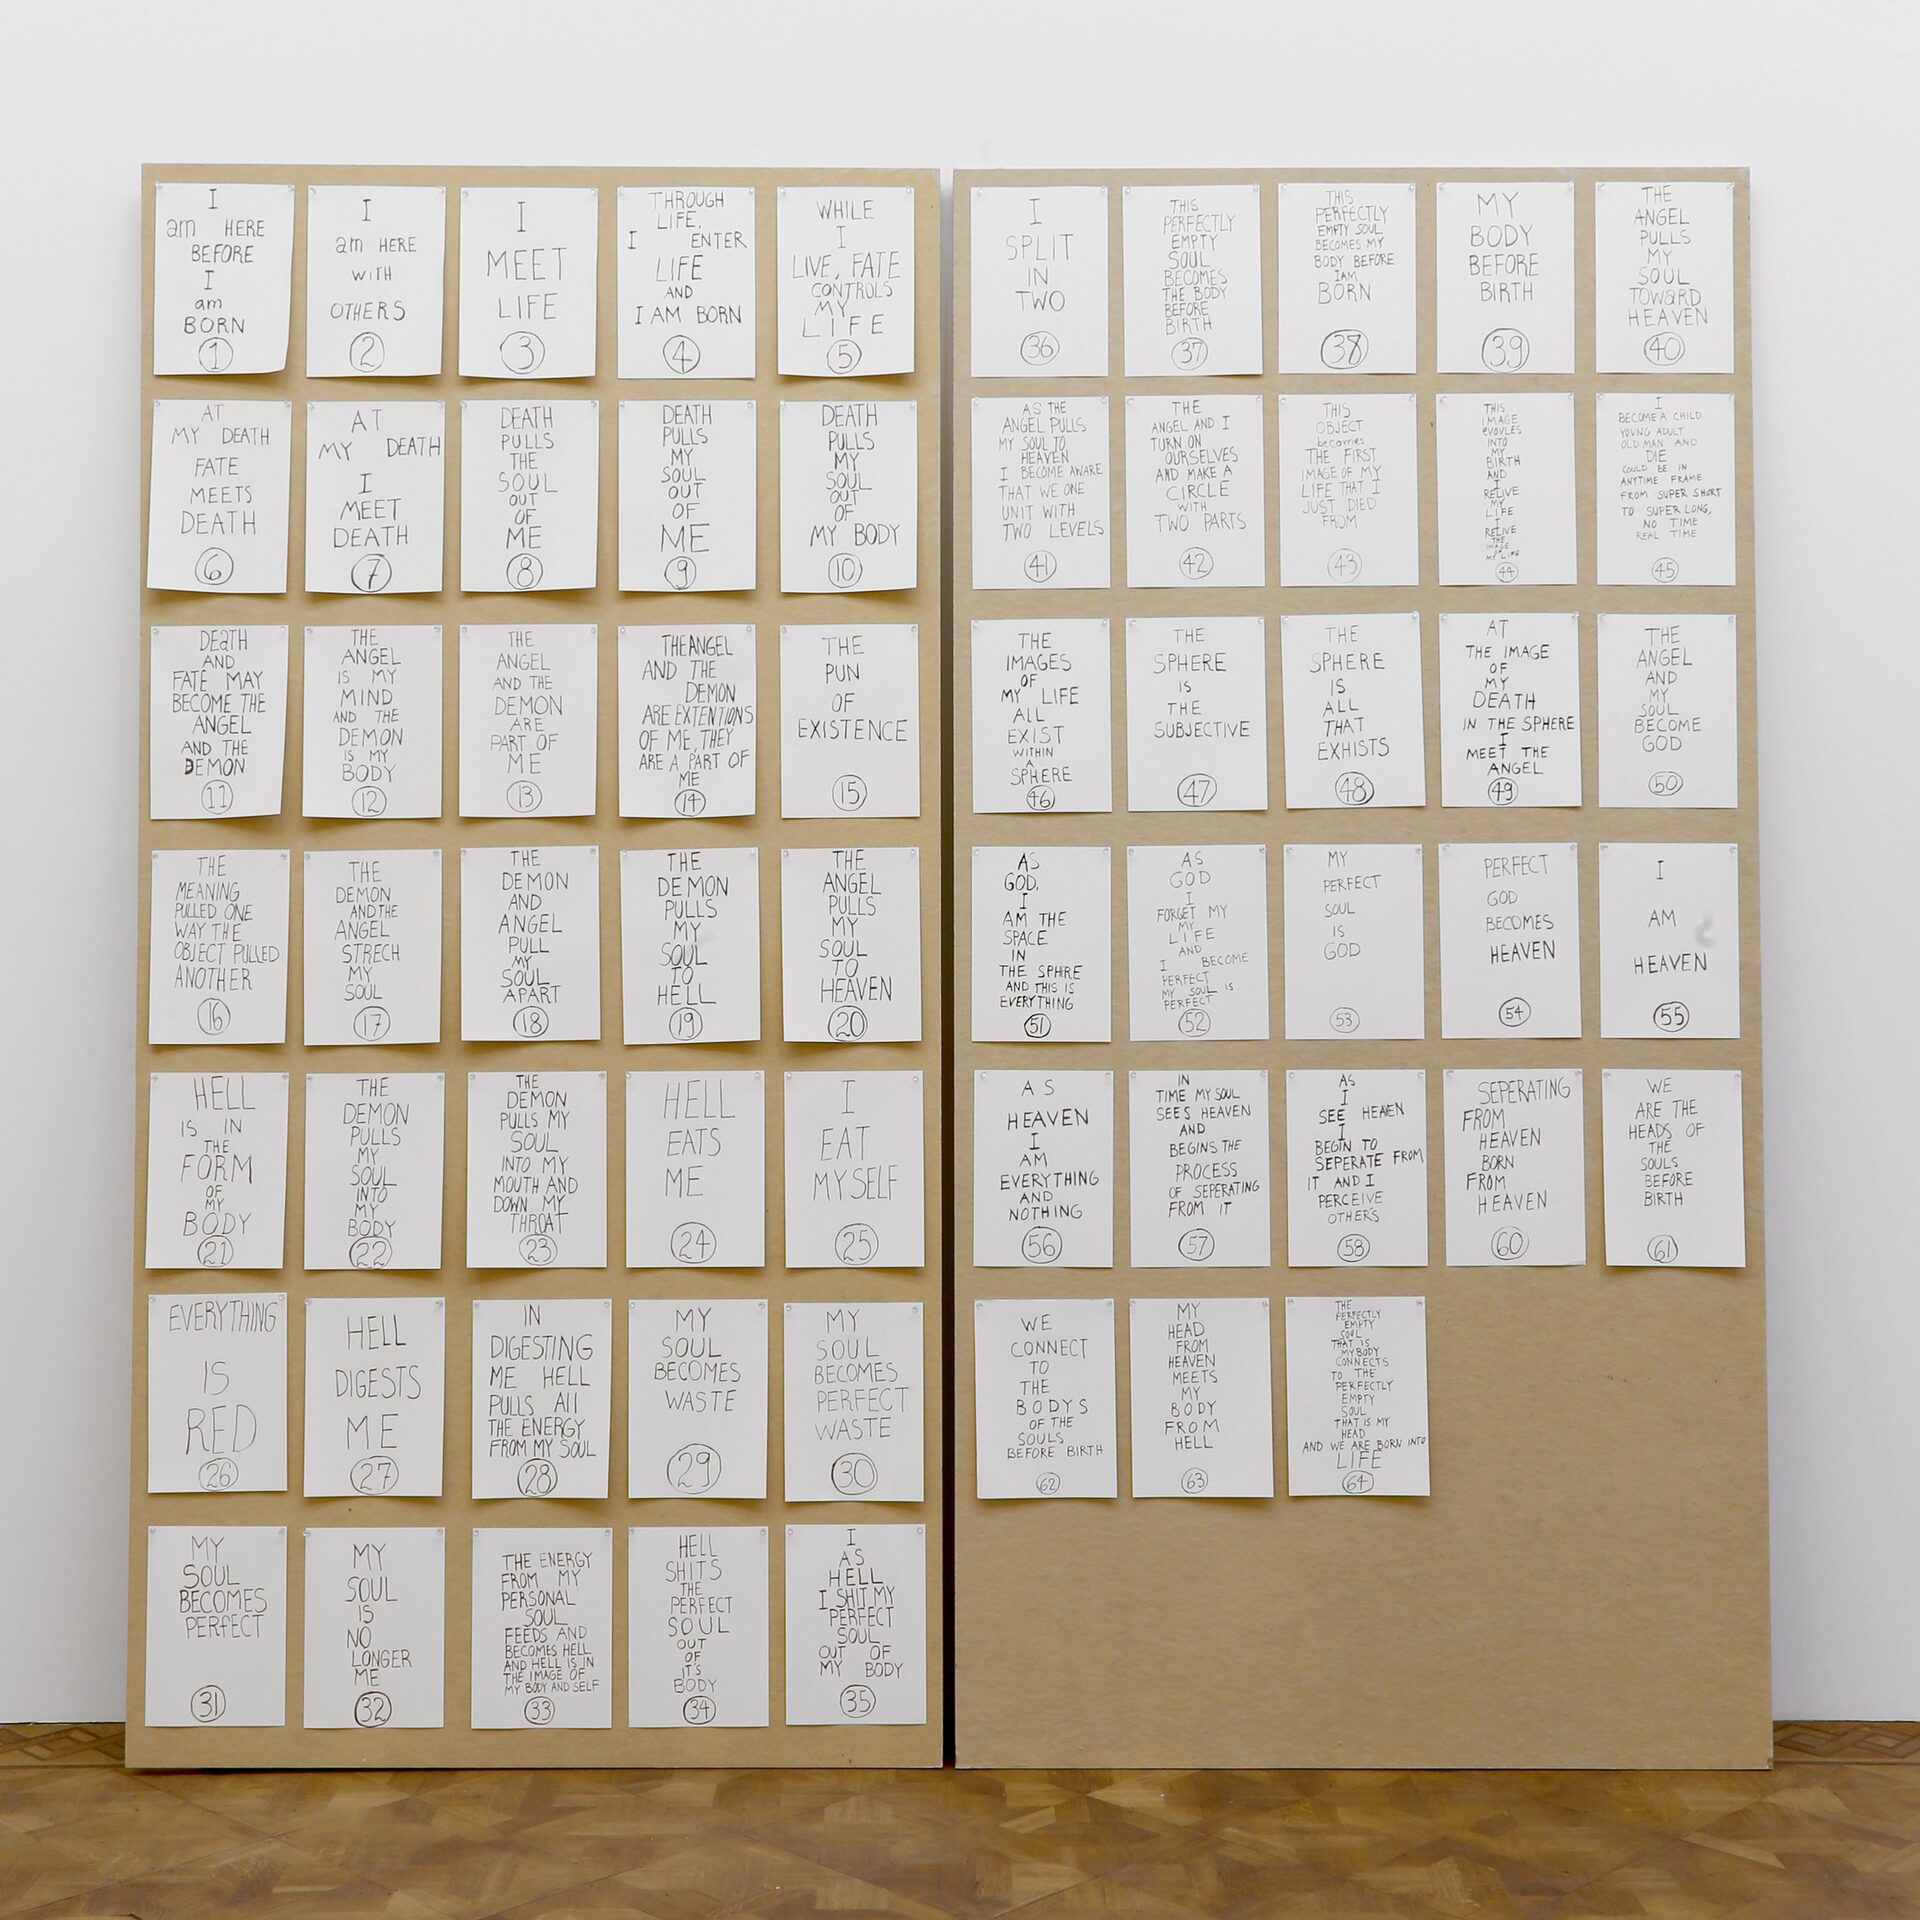 I
am HERE
BEFORE
I
am
BORN
1
I
am HERE
WITH
OTHERS
2
I
MEET
LIFE
3
THROUGH
LIFE,
I ENTER
LIFE
AND
I AM BORN
4
WHILE
I
LIVE, FATE
CONTROLS
MY
LIFE
5
AT
MY DEATH
FATE
MEETS
DEATH
6
AT
MY DEATH
I
MEET
DEATH
7
DEATH
PULLS
THE
SOUL
OUT
OF
ME
8
DEATH
PULLS
MY
SOUL
OUT
OF
ME
9
DEATH
PULLS
MY
SOUL
OUT
OF
MY BODY
10
DEaTH
AND
FATE MAY
BECOME THE
ANGEL
AND THE
DEMON
11
THE
ANGEL
IS MY
MIND
AND THE
DEMON
IS MY
BODY
12
THE
ANGEL
AND THE
DEMON
ARE
PART OF
ME
13
THE ANGEL
AND THE
DEMON
ARE EXTENTIONS
OF ME, THEY
ARE A PART OF
ME
14
THE
PUN
OF
EXISTENCE
15
THE
MEANING
PULLED ONE
WAY THE
OBJECT PULLED
ANOTHER
16
THE
DEMON
AND THE
ANGEL
STRECH
MY
SOUL
17
THE
DEMON
AND
ANGEL
PULL
MY
SOUL
APART
18
THE
DEMON
PULLS
MY
SOUL
TO
HELL
19
THE
ANGEL
PULLS
MY
SOUL
TO
HEAVEN
20
HELL
IS IN
THE
FORM
OF
MY
BODY
21
THE
DEMON
PULLS
MY
SOUL
INTO
MY
BODY
22
THE
DEMON
PULLS MY
SOUL
INTO MY
MOUTH AND
DOWN MY
THROAT
23
HELL
EATS
ME
24
I
EAT
MYSELF
25
EVERYTHING
IS
RED
26
HELL
DIGESTS
ME
27
IN
DIGESTING
ME HELL
PULLS All
THE ENERGY
FROM MY SOUL
28
MY
SOUL
BECOMES
WASTE
29
MY
SOUL
BECOMES
PERFECT
WASTE
30
MY
SOUL
BECOMES
PERfECT
31
MY
SOUL
IS
NO
LONGER
ME
32
THE ENERGY
FROM MY
PERSONAL
SOUL
FEEDS AND
BECOMES HELL
AND HELL IS IN
THE IMAGE OF
MY BODY AND SELF
33
HELL
SHITS
THE
PERFECT
SOUL
OUT
OF
IT'S
BODY
34
I
AS
HELL
I SHIT MY
PERFECT
SOUL
OUT OF
MY BODY
35
I
SPLIT
IN
TWO
36
THIS
PERFECTLY
EMPTY
SOUL
BECOMES
THE BODY
BEFORE
BIRTH
37
THIS
PERFECTLY
EMPTY SOUL
BECOMES MY
BODY BEFORE
I AM
BORN
38
MY
BODY
BEFORE
BIRTH
39
THE
ANGEL
PULLS
MY
SOUL
TOWaRD
HEAVEN
40
AS THE
ANGEL PULLS
MY SOUL TO
HEAVEN
I BECOME AWARE
THAT WE ONE
UNIT WITH
TWO LEVELS
41
THE
ANGEL AND I
TURN ON
OURSELVES
AND MAKE A
CIRCLE
WITH
TWO PARTS
42
THIS
OBJECT
becomes
THE FIRST
IMAGE OF MY
LIFE THAT I
JUST DIED
FROM
43
THIS
IMAGE
evOVLES
INTO
MY
BIRTH
AND
I
RELIVE
MY
LIFE
I
RELIVE
THE
IMAGE
OF
MY LIFE
44
I
BECOME A CHILD
YOUNG ADULT
OLD MAN AND
DIE
COULD BE IN
ANYTIME FRAME
FROM SUPER SHORT
TO SUPER LONG,
NO TIME
REAL TIME
45
THE
IMAGES
OF
MY LIFE
ALL
EXIST
WITHIN
A
SPHERE
46
THE
SPHERE
IS
THE
SUBJECTIVE
47
THE
SPHERE
IS
ALL
THAT
EXHISTS
48
AT
THE IMAGE
OF
MY
DEATH
IN THE SPHERE
I
MEET THE
ANGEL
49
THE
ANGEL
AND
MY
SOUL
BECOME
GOD
50
AS
GOD,
I
AM THE
SPACE
IN
THE SPHIRE
AND THIS IS
EVERYTHING
51
AS
GOD
I
FORGET MY
MY
LIFE
AND
I BECOME
PERFECT
MY SOUL IS
PERFECT
52
MY
PERFECT
SOUL
IS
GOD
53
PERFECT
GOD
BECOMES
HEAVEN
54
I
AM
HEAVEN
55
AS
HEAVEN
I
AM
EVERYTHING
AND
NOTHING
56
IN
TIME MY SOUL
SEES HEAVEN
AND
BEGINS THE
PROCESS
OF SEPERATING
FROM IT
57
AS
I
SEE HEAVEN
I
BEGIN TO
SEPERATE FROM
IT AND I
PERCEIVE
OTHERS
58
SEPERATING
FROM
HEAVEN
BORN
FROM
HEAVEN
60
WE
ARE THE
HEADS OF
THE
SOULS
BEFORE
BIRTH
61
WE
CONNECT
TO
THE
BODYS
OF THE
SOULS
BEFORE BIRTH
62
MY
HEAD
FROM
HEAVEN
MEETS
MY
BODY
FROM
HELL
63
THE
PERFECTLY
EMPTY
SOUL
THAT IS
MY BODY
CONNECTS
TO THE
PERFECTLY
EMPTY
SOUL
THAT IS MY
HEAD
AND WE ARE BORN INTO
LIFE
64